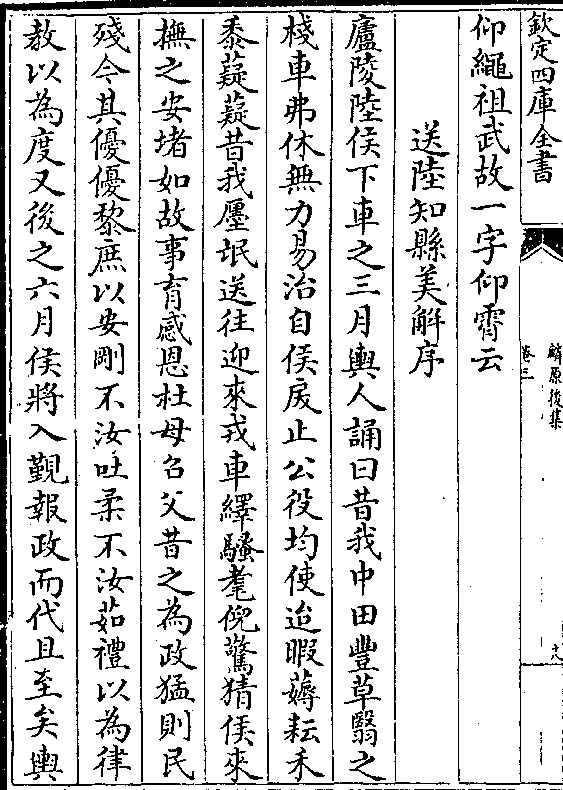 欽定四庫全書
麟原後集
卷三
十八
仰繩祖武故一字仰霄云
送陸知縣美解序
廬陵陸侯下車之三月輿人誦曰昔我中田豐草翳之
棧車弗休無力易治自侯戾止公役均使迨暇薅耘禾
黍薿薿昔我廛氓送往迎來戎車繹騷耄倪驚猜侯來
撫之安堵如故事育感恩杜母召父昔之為政猛則民
殘今其優優黎庶以安剛不汝吐柔不汝茹禮以為律
教以為度又後之六月侯將入覲報政而代且至矣輿